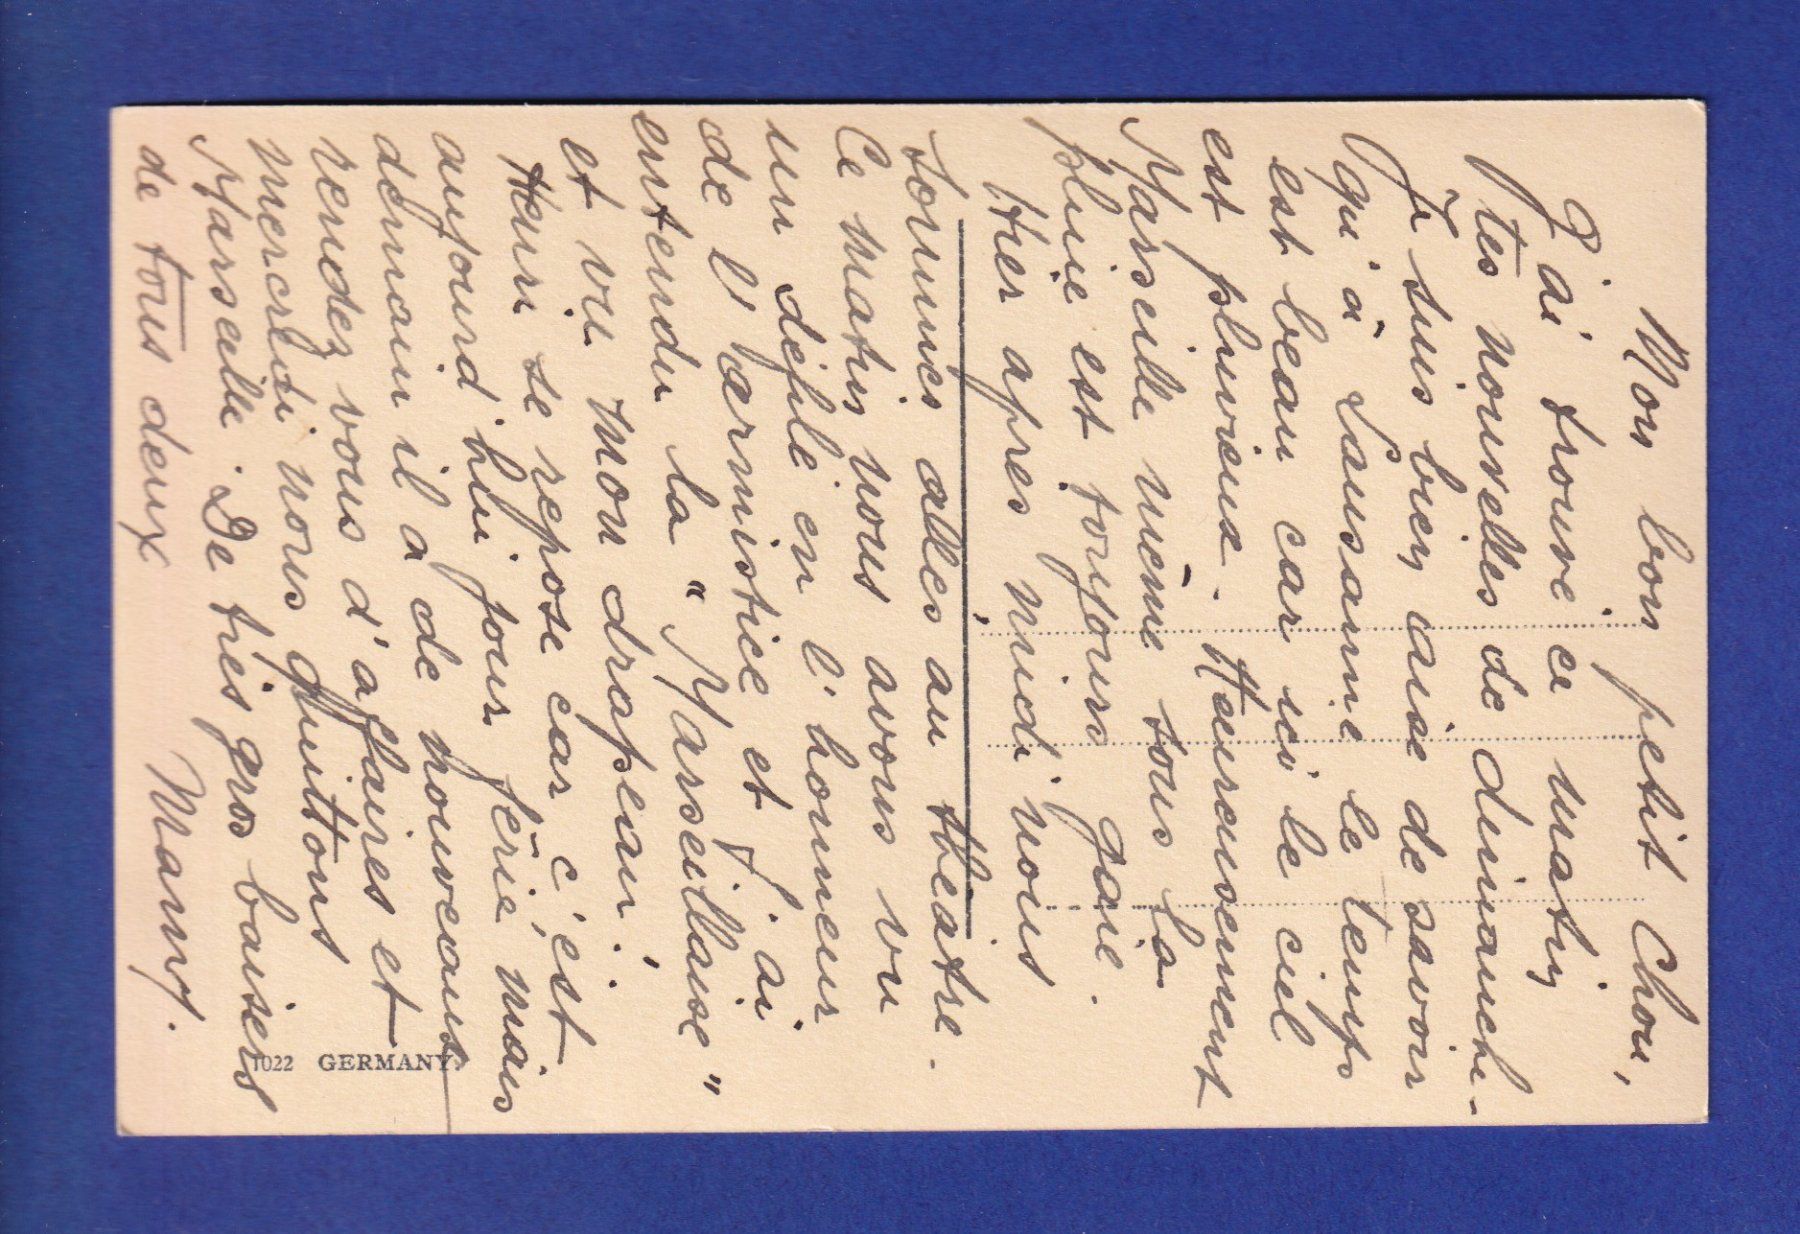 Mon bon petit Chou,
J'ai trouvé ce matin
tes nouvelles de dimanche-
Je suis bien aise de savoir
qu'à Lausanne le temps
est beau car ici le ciel
est pluvieux. Heureusement
Marseille même sous la
pluie est toujours gaie.
Hier après midi nous
sommes allés au théatre.
Ce matin nous avons vu
un défilé en l'honneur
de l'armistice et j'ai
entendu la "Marseillaise"
et vu mon drapeau!
Henri se repose car c'est
aujourd'hui jour férié mais
demain il a de nouveaux
rendez vous d'affaires et
mercredi nous quittons
Marseille. De très gros baisers
de tous deux Mamy.
1022 GERMANY